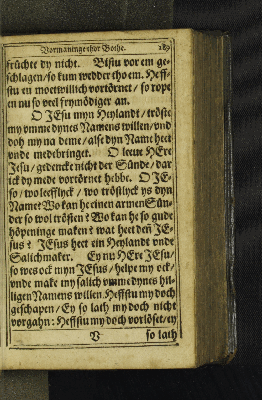 Vormaninge thor Bothe. 289
früchte dy nicht. Bistu vor em ge-
schlagen/so kum wedder tho em. Heff-
stu en moetwillich vortörnet/so rope
en nu so veel frymödiger an.
O JEsu myn Heylandt/tröste
my vmme dynes Namens willen/vnd
doh my na deme/alse dyn Name heet
vnde medebringet. O leeue HEre
Jesu/gedencke nicht der Sünde/dar
ick dy mede vortörnet hebbe. O JE-
so/wo leefflyck/wo tröstlyck ys dyn
Name? Wo kan he einen armen Sün-
der so wol trösten? Wo kan he so gude
höpeninge maken? wat heet den JE-
sus? JEsus heet ein Heylandt vnde
Salichmaker. Ey nu HEre JEsu/
so wes ock myn JEsus/helpe my ock/
vnde make my salich vmme dynes hil-
ligen Namens willen. Heffstu my doch
geschapen/Ey so lath my doch nicht
vorgahn: Heffstu my doch vorlöset/ey
V so lath